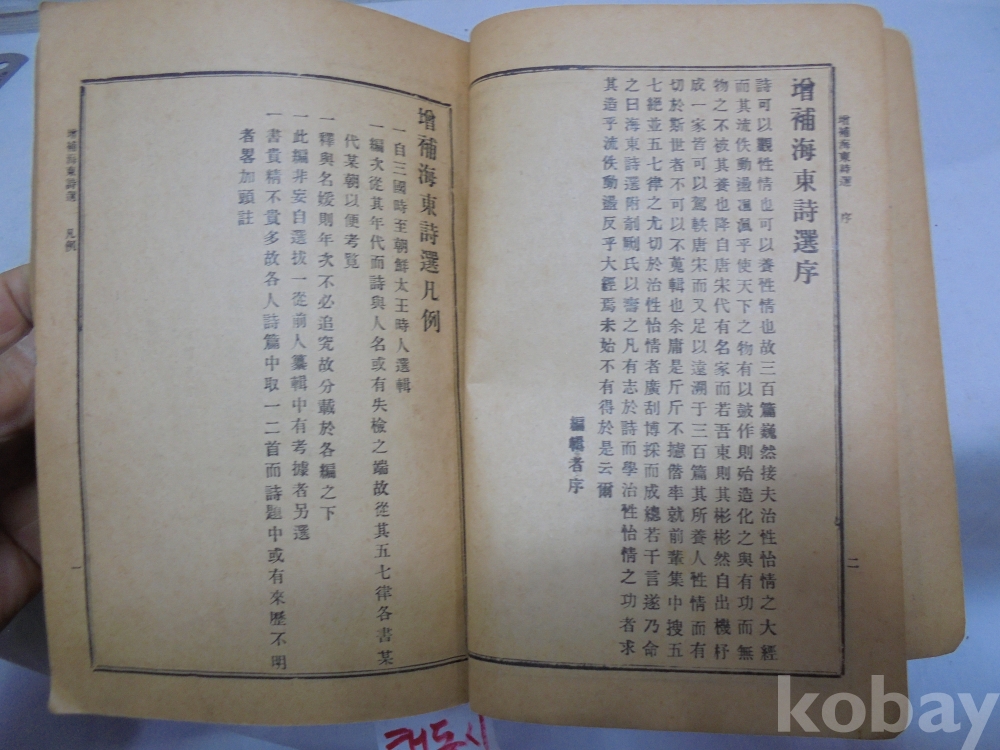 增補海東詩選 序
二
增補海東詩選序
詩可以觀性情也可以養性情也故三百篇巍然接夫治性怡情之大經
而其流佚動盪渢渢乎使天下之物有以鼓作則殆造化之與有功而無
物之不被其養也降自唐宋代有名家而若吾東則其彬彬然自出機杼
成一家皆可以駕軼唐宋而又足以遠溯于三百篇其所養人性情而有
切於斯世者不可以不蒐輯也余庸是斤斤不揆僭率就前輩集中搜五
七絕並五七律之尤切於治性怡情者廣刮博採而成總若干言遂乃命
之曰海東詩選附剞劂氏以壽之凡有志於詩而學治性怡情之功者求
其造乎流佚動盪反乎大經焉未始不有得於是云爾
編輯者序
增補海東詩選凡例
一自三國時至朝鮮太王時人選輯
一編次從其年代而詩與人名或有失檢之端故從其五七律各書某
代某朝以便考覽
一釋與名媛則年次不必追究故分載於各編之下
一此編非妄自選拔一從前人纂輯中有考據者另選
一書貴精不貴多故各人詩篇中取一二首而詩題中或有來歷不明
者畧加頭註
增補海東詩選 凡例
一
해동시
kobay